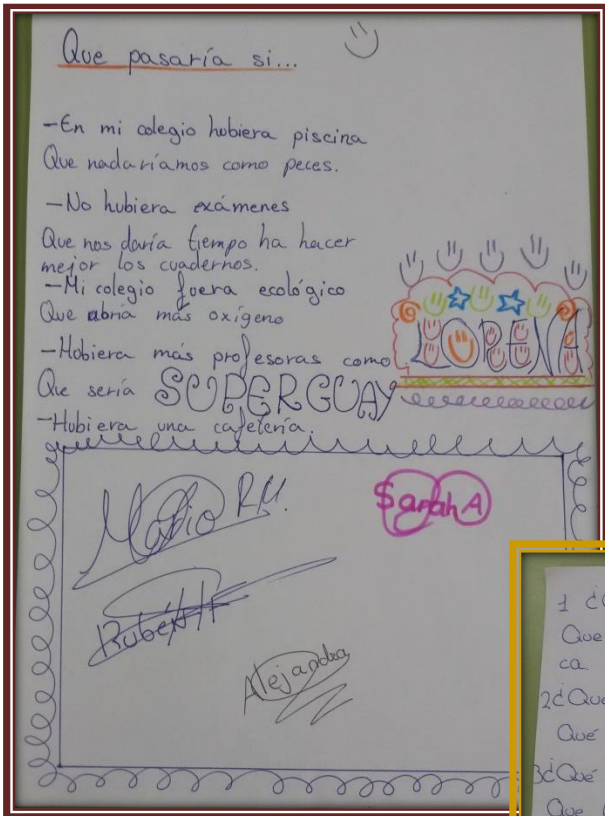 Que pasaría si...
-En mi colegio hubiera piscina
Que nadaríamos como peces.
-No hubiera exámenes
Que nos daría tiempo ha hacer
mejor los cuadernos.
-Mi colegio fuera ecológico
Que abria más oxígeno
-Hobiera más profesoras como
LORENA
Que sería SUPERGUAY
-Hubiera una cafetería.
Mario R.M.
Sarah A
Rubén
Alejandra
1 ¿
Que
ca.
2¿Que
Qué
3¿Qué
Que